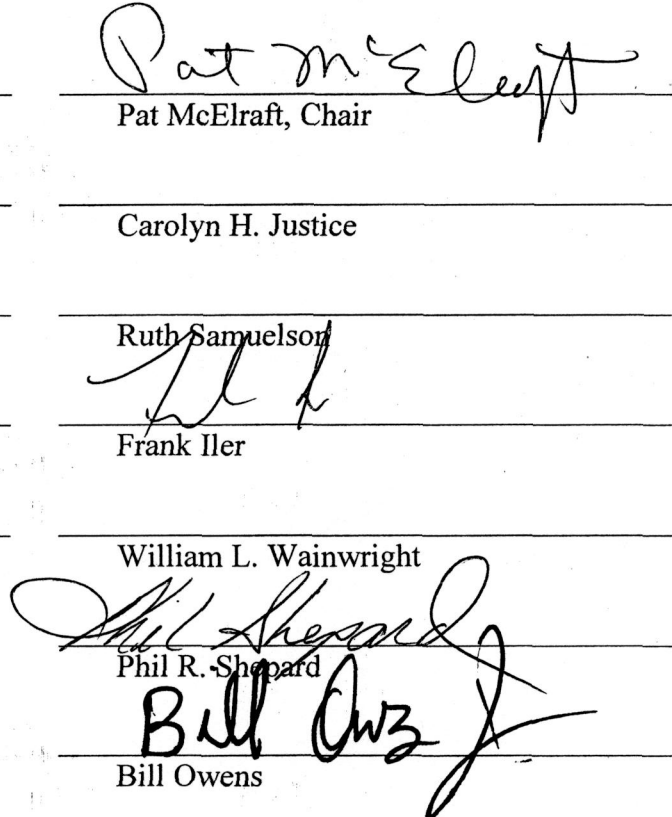 Pat McElraft
Pat McElraft, Chair
Carolyn H. Justice
Ruth Samuelson
Frank Iler
William L. Wainwright
Phil Shepard
Phil R. Shepard
Bill Owens Jr
Bill Owens